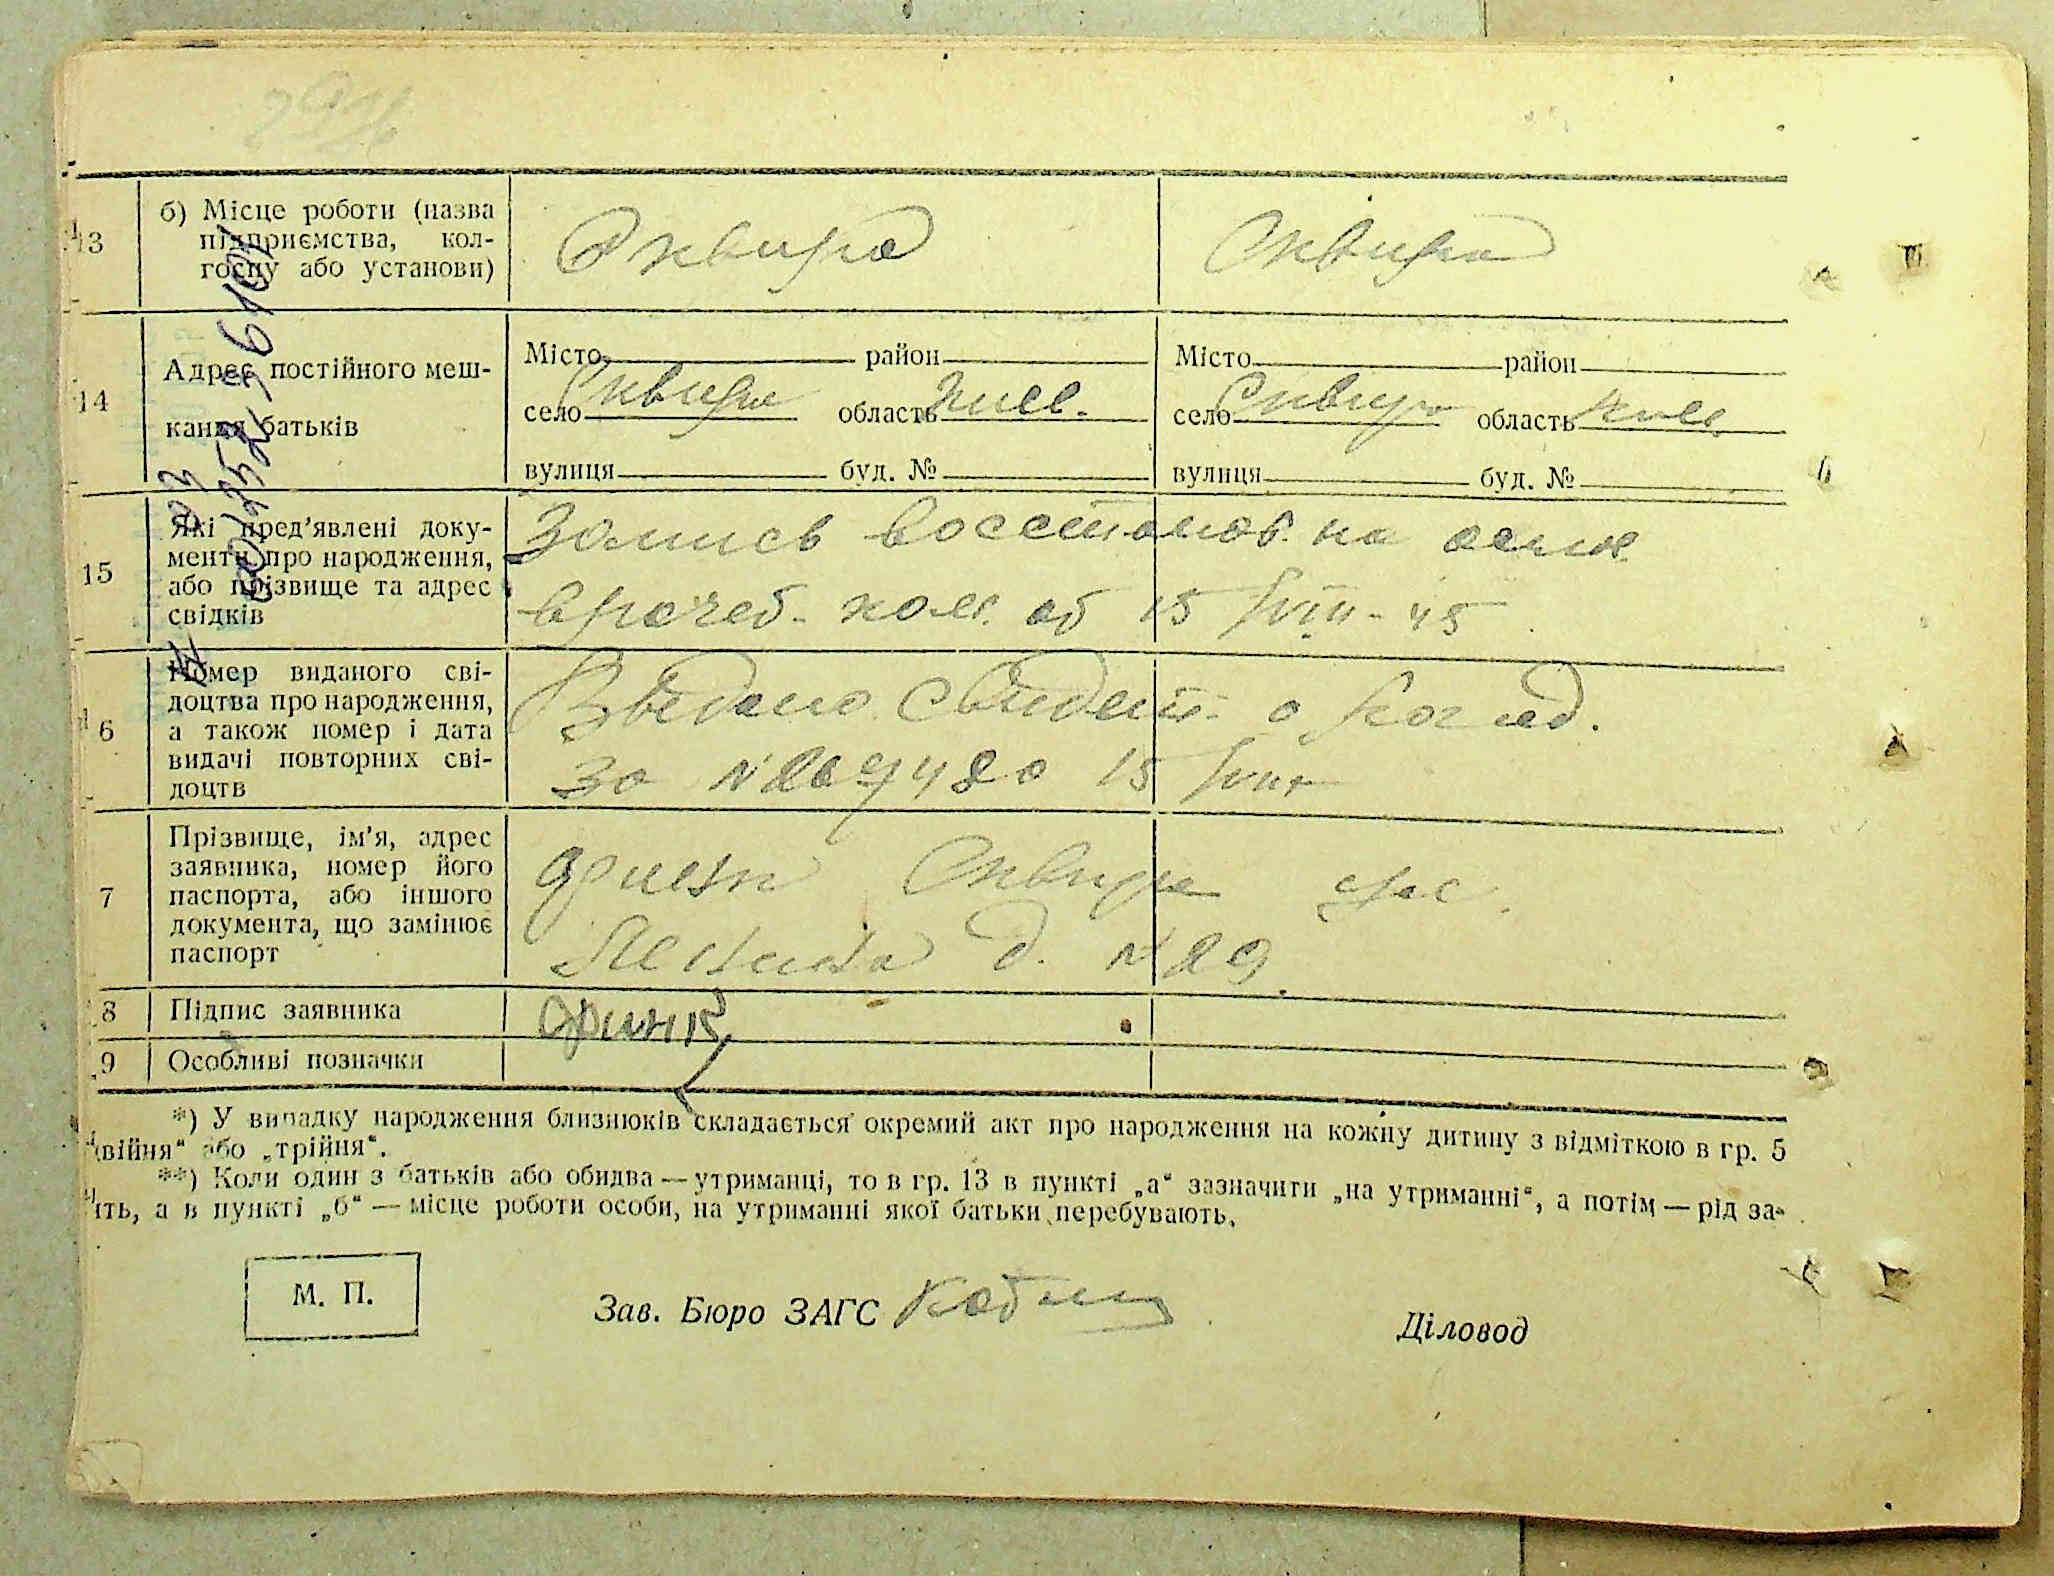 13
б) Місце роботи (назва
підприємства, кол-
госпу або установи)
Сквира
Сквира
14
Адрес постійного меш-
кання батьків
Місто район
село Сквира область Киев.
вулиця буд. №
Місто район
село Сквира область Киев.
вулиця буд. №
15
Які пред’явлені доку-
менти про народження,
або прізвище та адрес
свідків
Запись восстанов. на основ.
врачеб. ком. от 15/VIII-45
6
Номер виданого сві-
доцтва про народження,
а також номер і дата
видачі повторних сві-
доцтв
Выдано свидет. о рожд.
за № 15/VIII
7
Прізвище, ім’я, адрес
заявника, номер його
паспорта, або іншого
документа, що замінює
паспорт
Сквира ул.
Ленина д. № 29
8
Підпис заявника
9
Особливі позначки
*) У випадку народження близнюків складається окремий акт про народження на кожну дитину з відміткою в гр. 5
двійня“ або „трійня“.
**) Коли один з батьків або обидва — утриманці, то в гр. 13 в пункті „а“ зазначити „на утриманні“, а потім — рід за-
ять, а в пункті „б“ — місце роботи особи, на утриманні якої батьки перебувають.
М. П.
Зав. Бюро ЗАГС
Діловод